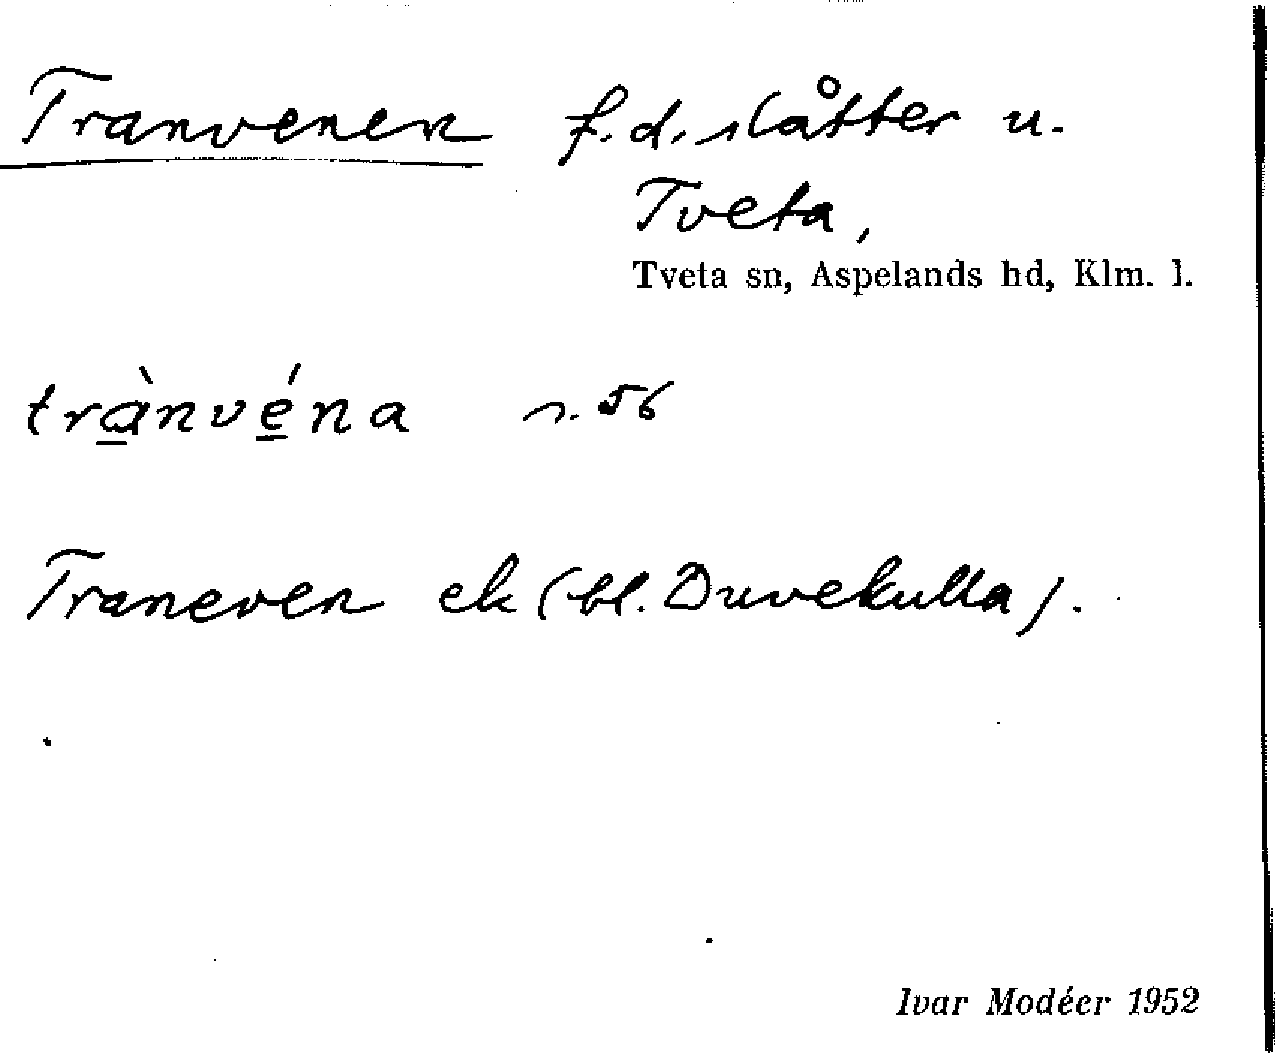 Tranvenen f.d. slåtter u.
Tveta,
Tveta sn, Aspelands hd, Klm. l.
trànvéna s. 56
Traneven ek (bl. Duvekulla).
Ivar Modéer 1952